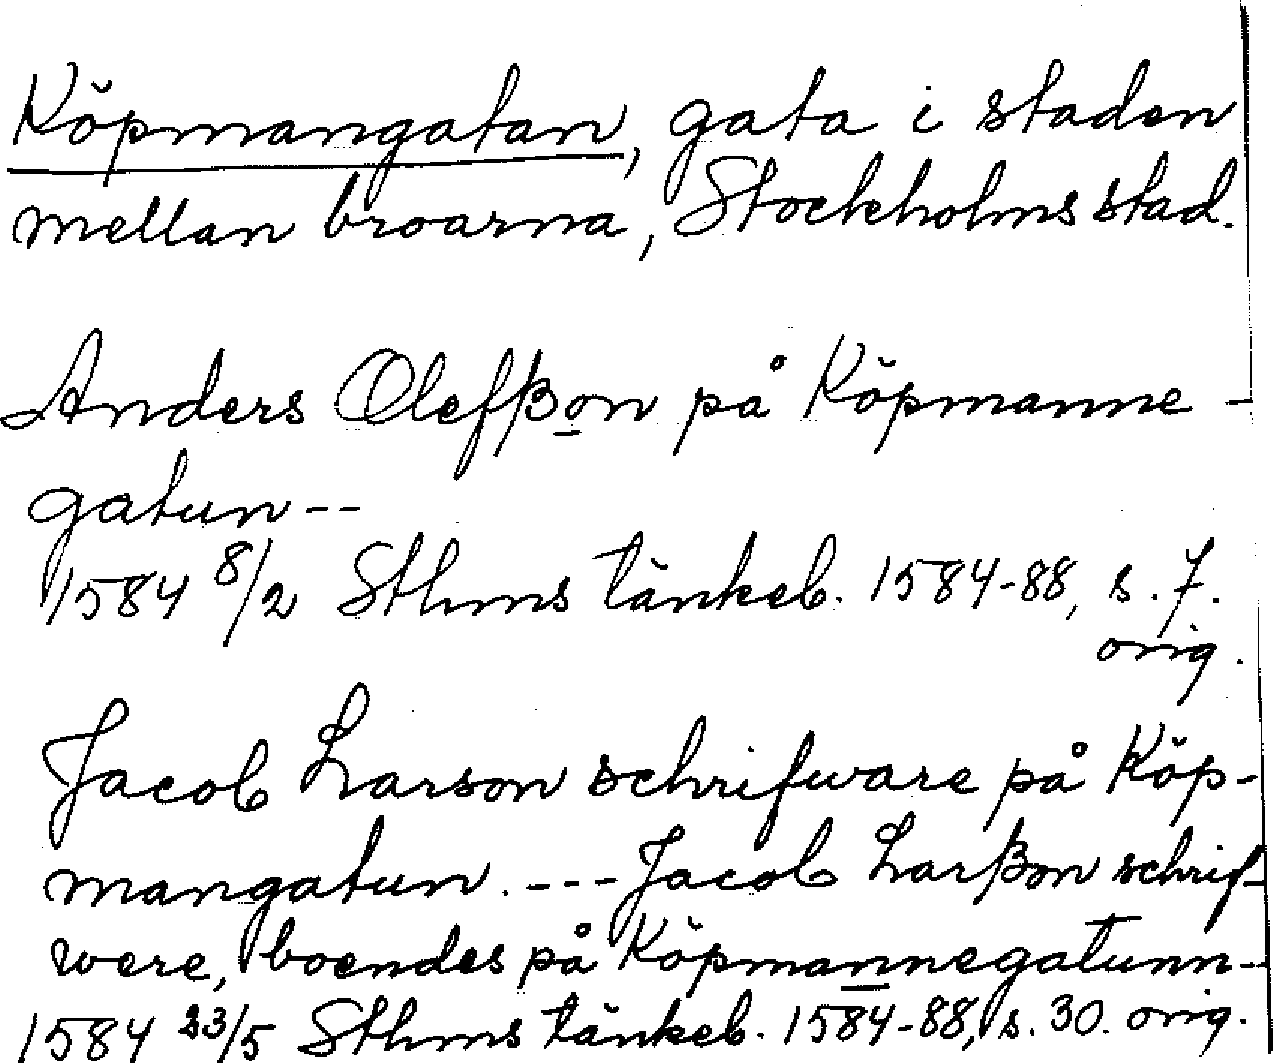 Köpmangatan, gata i staden
mellan broarna, Stockholms stad.
Anders Olefßon på Köpmanne-
gatun--
1584 8/2 Sthms tänkeb. 1584-88, s. 7.
orig.
Jacob Larson schrifware på Köp-
mangatun. --- Jacob Larßon schrif-
were, boendes på Köpmannegatunn-
1584 23/5 Sthms tänkeb. 1584-88, s. 30. orig.